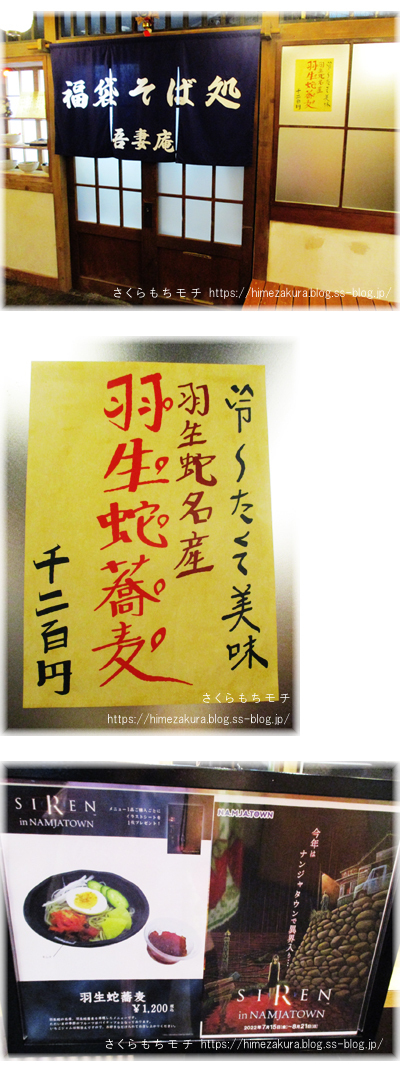 福袋そば処
吾妻庵
冷たくて美味
羽生蛇名産
羽生蛇蕎麦
千二百円
さくらもちモチ https://himezakura.blog.ss-blog.jp/
冷〱たくて美味
羽生蛇名産
羽生蛇蕎麦
千二百円
さくらもちモチ
https://himezakura.blog.ss-blog.jp/
SIREN
in NAMJATOWN
メニュー1品ご購入ごとに
イラストシートを
1枚プレゼント!
羽生蛇蕎麦
¥1,200
NAMJATOWN
今年は
ナンジャタウンで異界入り…
SIREN
in NAMJATOWN
2022年7月15日(金)~8月21日(日)
さくらもちモチ https://himezakura.blog.ss-blog.jp/